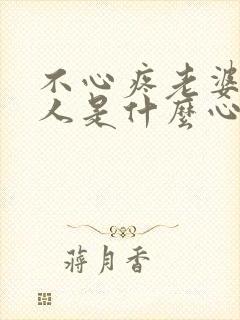 不心疼老婆
人是什麼心
蔣月香